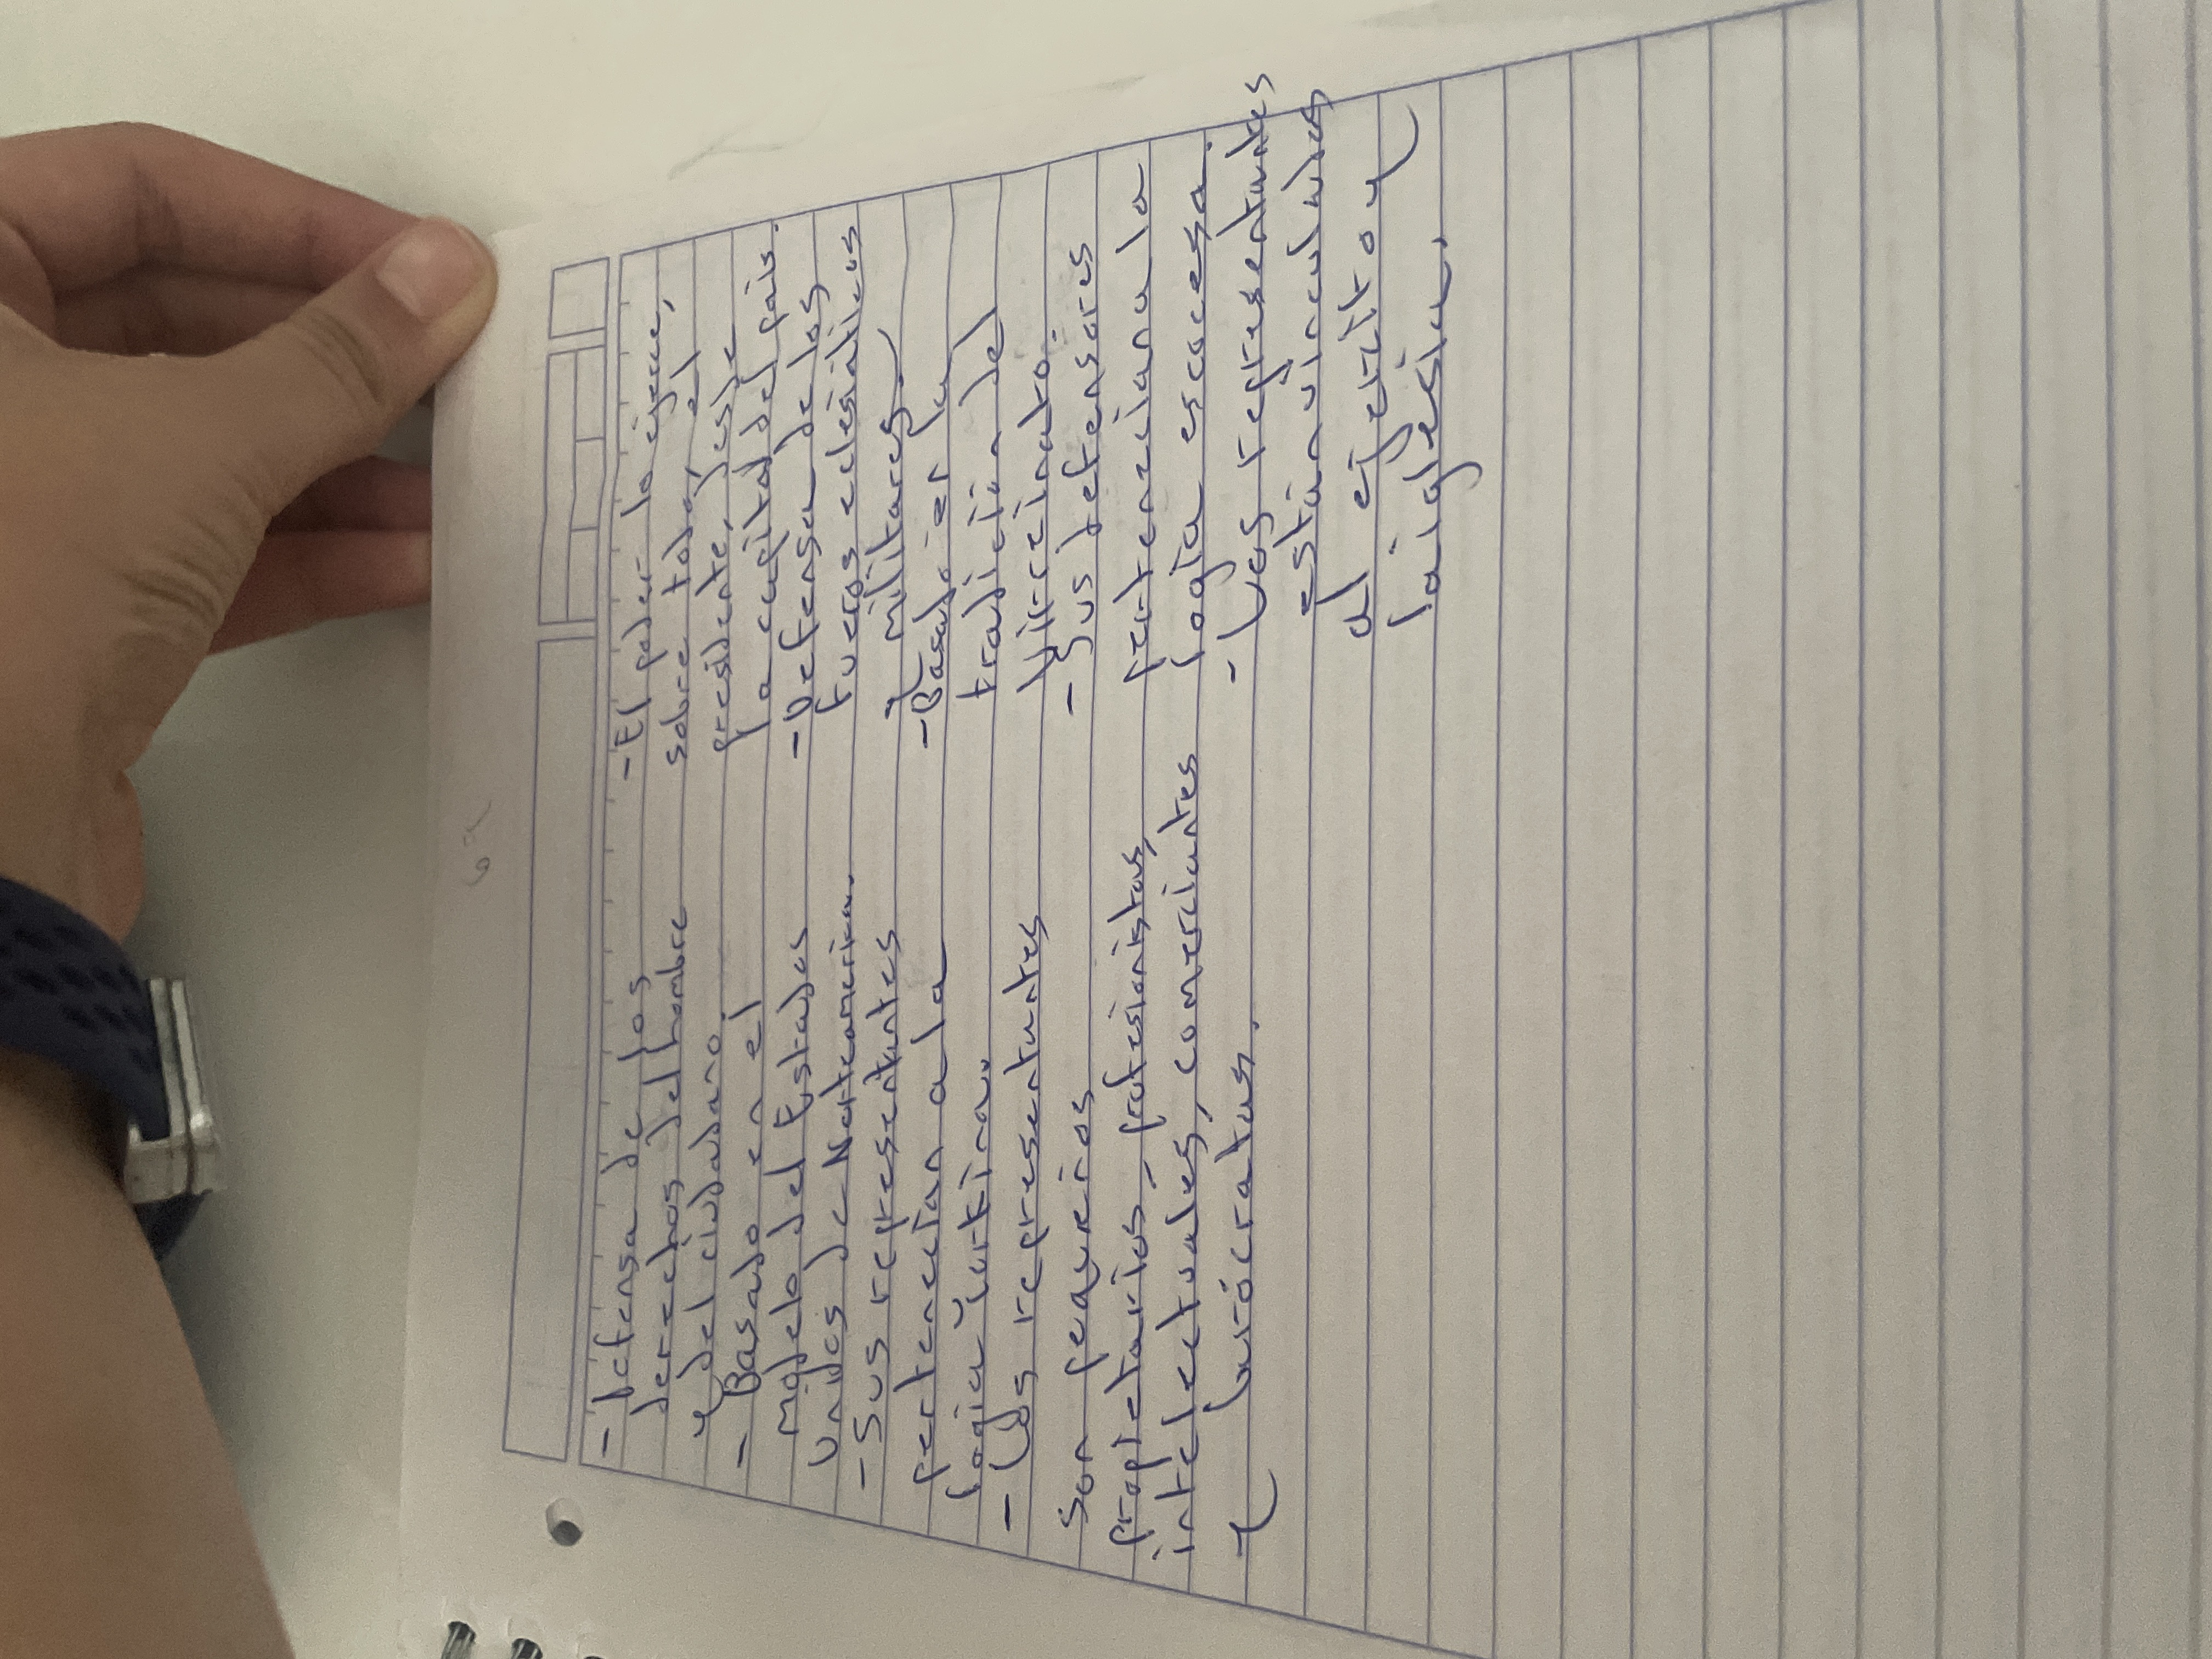 - Defensa de los
derechos del hombre
y del ciudadano.
- Basado en el
modelo del Estados
Unidos de Norteamérica.
- Sus representantes
pertenecían a la
logia yorkina.
- Los representantes
son pequeños
propietarios, profesionistas,
intelectuales, comerciantes
y burócratas.
- El poder lo ejerce,
sobre todo, el
presidente, desde
la capital del país.
- Defensa de los
fueros eclesiáticos
y militares.
- Basado en la
tradición del
Virreinato.
- Sus defensores
pertenecian a la
logia escocesa.
- Los representantes
están vinculados
al ejército y
la iglesia.